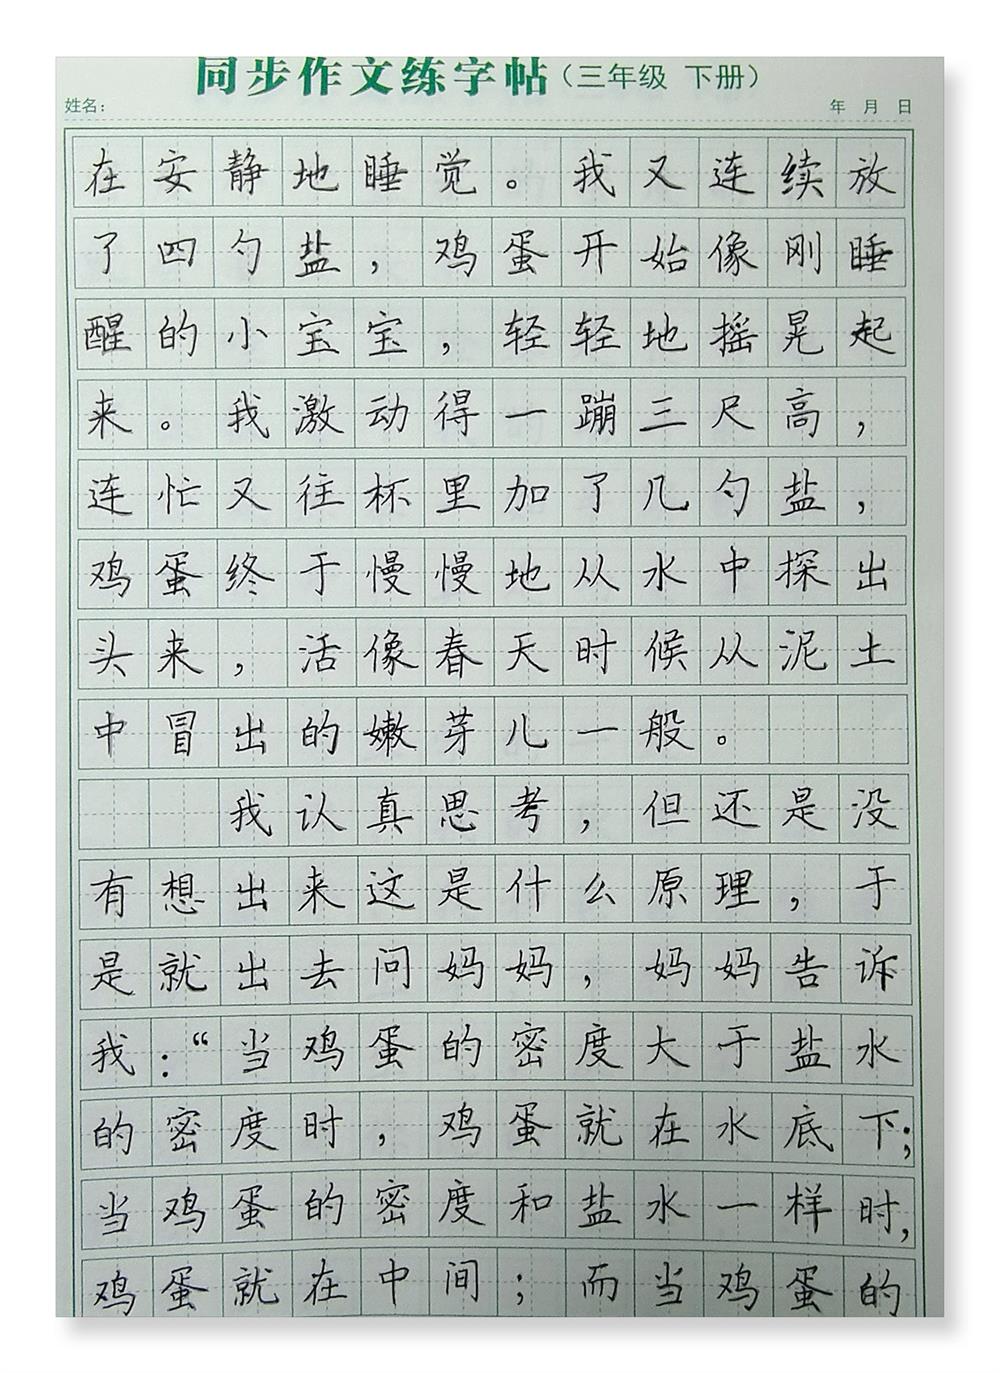 同步作文练字帖（三年级 下册）
姓名： 年 月 日
在安静地睡觉。我又连续放
了四勺盐，鸡蛋开始像刚睡
醒的小宝宝，轻轻地摇晃起
来。我激动得一蹦三尺高，
连忙又往杯里加了几勺盐，
鸡蛋终于慢慢地从水中探出
头来，活像春天时候从泥土
中冒出的嫩芽儿一般。
我认真思考，但还是没
有想出来这是什么原理，于
是就出去问妈妈，妈妈告诉
我：“当鸡蛋的密度大于盐水
的密度时，鸡蛋就在水底下；
当鸡蛋的密度和盐水一样时，
鸡蛋就在中间；而当鸡蛋的